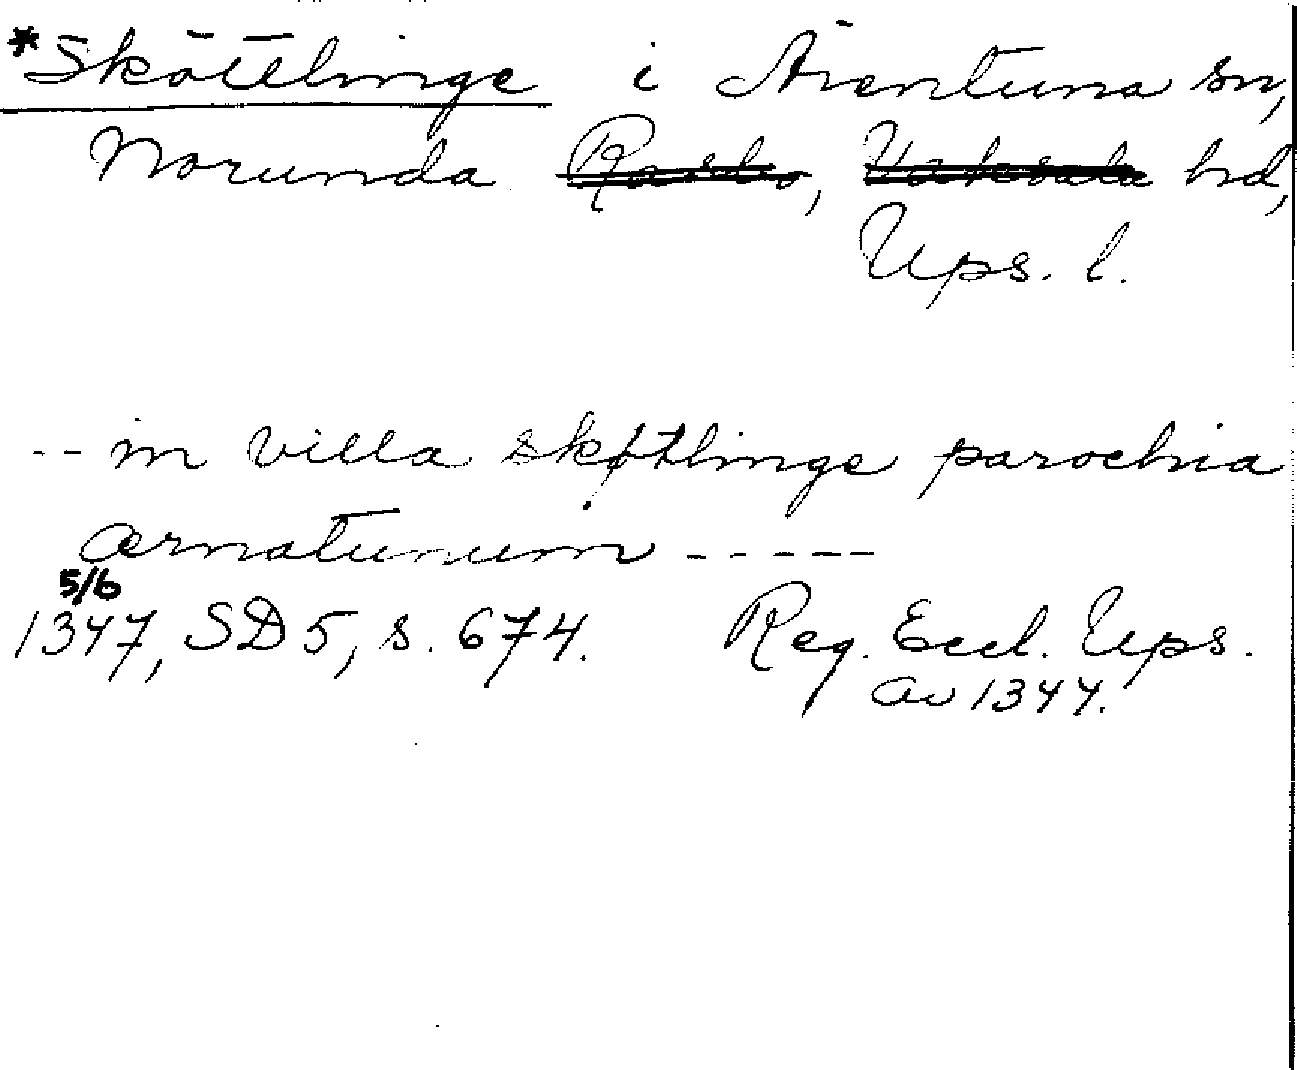 *Sköttlinge i Ärentuna sn,
Norunda Rasbo, Vaksala hd,
Ups. l.
-- in villa skøtlinge parochia
ærnatunum -----
5/6
1347, SD 5, s. 674. Reg. Eccl. Ups.
av 1344.